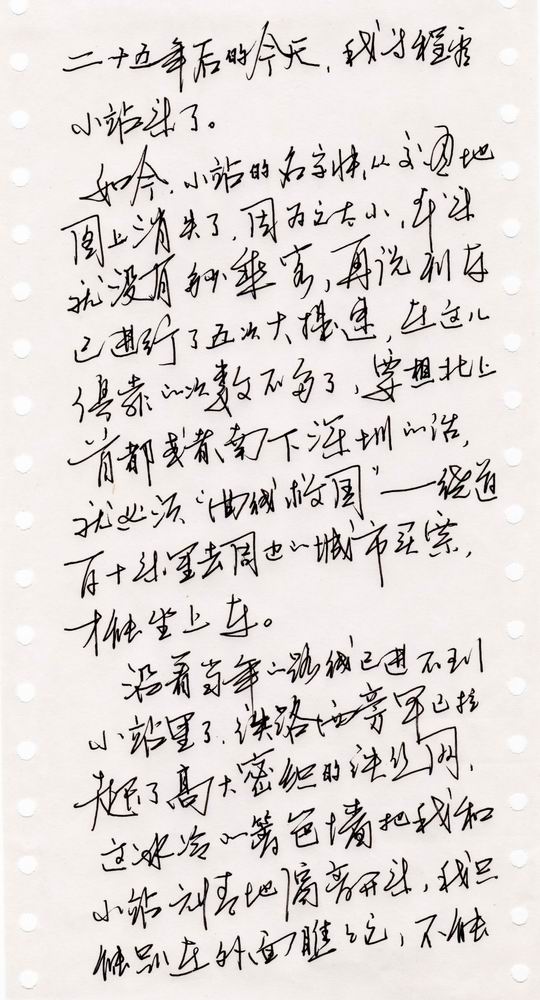 二十五年后的今天，我与程香
小站来了。
如今，小站的名字快从交通地
图上消失了，因为它太小，本来
就没有多少乘客，再说列车
已进行了五次大提速，在这儿
停靠的次数不多了，要想北上
首都或者南下深圳的话，
就必须“曲线救国”——绕道
百十来里去周边的城市买票，
才能坐上车。
沿着当年的路线已进不到
小站里了，铁路两旁早已拉
起了高大密织的铁丝网，
这冰冷的篱笆墙把我和
小站刻意地隔离开来，我只
能趴在外面瞧它，不能